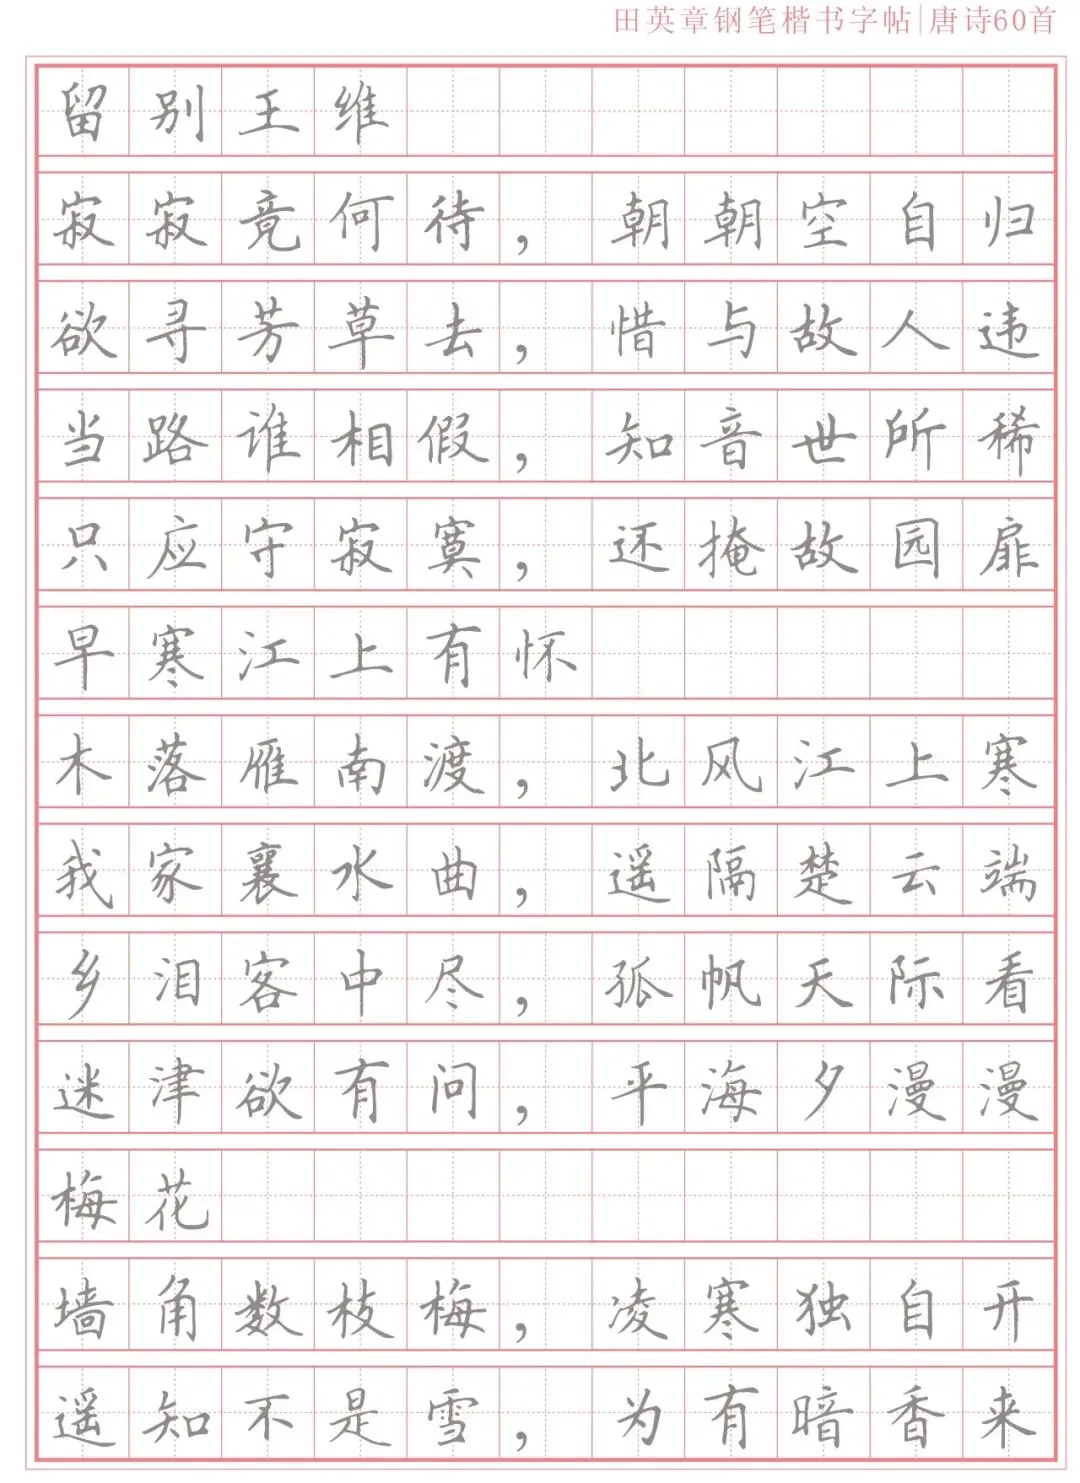 田英章钢笔楷书字帖|唐诗60首
留别王维
寂寂竟何待，朝朝空自归
欲寻芳草去，惜与故人违
当路谁相假，知音世所稀
只应守寂寞，还掩故园扉
早寒江上有怀
木落雁南渡，北风江上寒
我家襄水曲，遥隔楚云端
乡泪客中尽，孤帆天际看
迷津欲有问，平海夕漫漫
梅花
墙角数枝梅，凌寒独自开
遥知不是雪，为有暗香来